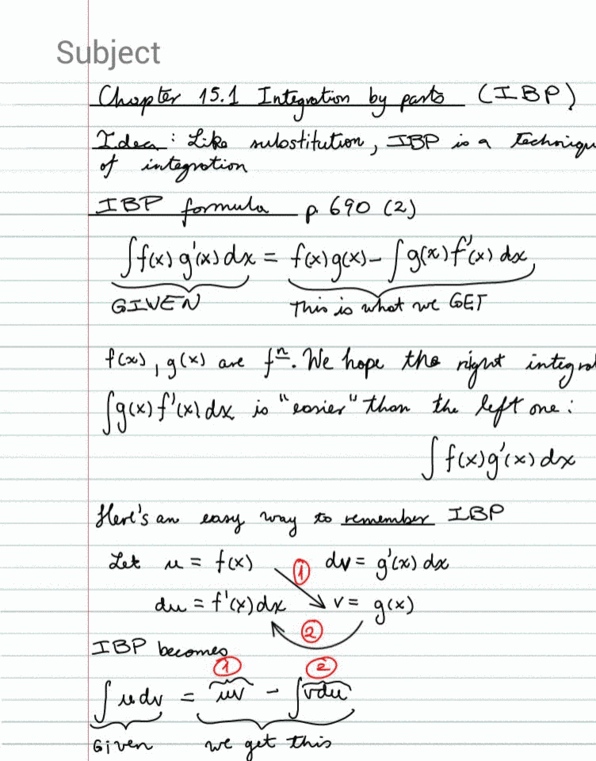 Subject
Chapter 15.1 Integration by parts (IBP)
Idea: Like substitution, IBP is a technique
of integration
IBP formula p. 690 (2)
∫f(x) g'(x) dx = f(x)g(x) - ∫g(x)f'(x) dx,
GIVEN This is what we GET
f(x), g(x) are fⁿ. We hope the right integral
∫g(x) f'(x) dx is "easier" than the left one:
∫f(x)g'(x) dx
Here's an easy way to remember IBP
Let u = f(x) ① dv = g'(x) dx
du = f'(x)dx v = g(x)
②
IBP becomes
① ②
∫u dv = uv - ∫vdu
Given we get this